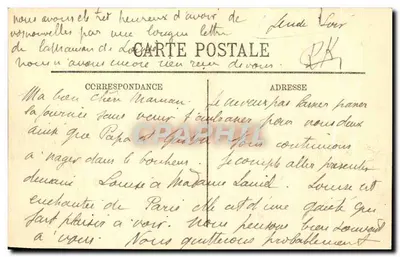 nous avons été très heureux d'avoir de Lundi Soir
vos nouvelles par une longue lettre
de la maman de Louise
CARTE POSTALE
nous n'avons encore rien reçu de vous.
CORRESPONDANCE ADRESSE
Ma bien chère Maman Je ne veux pas laisser passer
la journée sans venir t'embrasser pour nous deux
ainsi que Papa et Nous continuons
à nager dans le bonheur. Je compte aller présenter
demain Louise à Madame Louise est
enchantée de Paris elle est d'une gaieté qui
fait plaisir à voir. Nous pensons bien souvent
à vous. Nous quitterons probablement